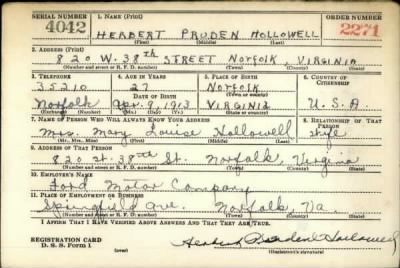 SERIAL NUMBER 1. NAME (Print) ORDER NUMBER
4042 HERBERT PRUDEN HOLLOWELL 2271
(First) (Middle) (Last)
2. ADDRESS (Print)
820 W. 38th STREET NORFOLK, VIRGINIA
(Number and street or R. F. D. number) (Town) (County) (State)
3. TELEPHONE 4. AGE IN YEARS 5. PLACE OF BIRTH 6. COUNTRY OF CITIZENSHIP
35210 27 NORFOLK
DATE OF BIRTH (Town or county)
Norfolk Apr. 9, 1913 VIRGINIA U.S.A.
(Exchange) (Number) (Mo.) (Day) (Yr.) (State or country)
7. NAME OF PERSON WHO WILL ALWAYS KNOW YOUR ADDRESS 8. RELATIONSHIP OF THAT PERSON
Mrs. Mary Louise Hollowell Wife
(Mr., Mrs., Miss) (First) (Middle) (Last)
9. ADDRESS OF THAT PERSON
820 38th St. Norfolk, Virginia
(Number and street or R. F. D. number) (Town) (County) (State)
10. EMPLOYER'S NAME
Ford Motor Company
11. PLACE OF EMPLOYMENT OR BUSINESS
Springfield Ave. Norfolk, Va.
(Number and street or R. F. D. number) (Town) (County) (State)
I AFFIRM THAT I HAVE VERIFIED ABOVE ANSWERS AND THAT THEY ARE TRUE.
REGISTRATION CARD
D. S. S. Form 1
Herbert Pruden Hollowell
(Registrant's signature)